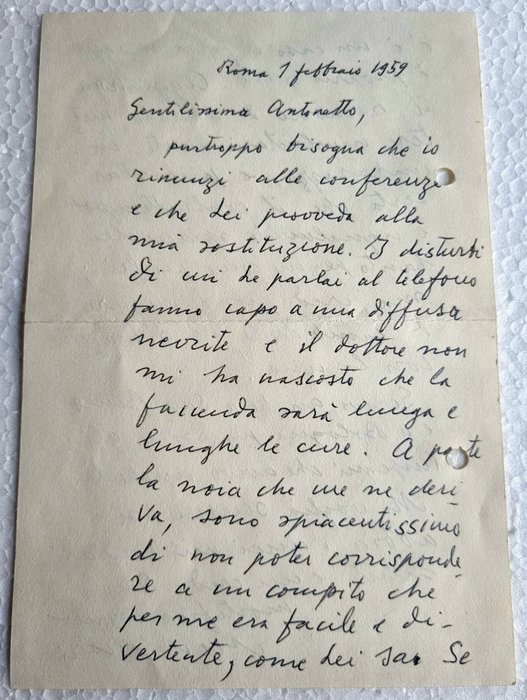 Roma 1 febbraio 1959
Gentilissima Antonetto,
purtroppo bisogna che io
rinunzi alle conferenze
e che Lei provveda alla
mia sostituzione. I disturbi
di cui Le parlai al telefono
fanno capo a una diffusa
nevrite e il dottore non
mi ha nascosto che la
faccenda sarà lunga e
lunghe le cure. A parte
la noia che me ne deri-
va, sono spiacentissimo
di non poter corrisponde-
re a un compito che
per me era facile e di-
vertente, come Lei sa. Se